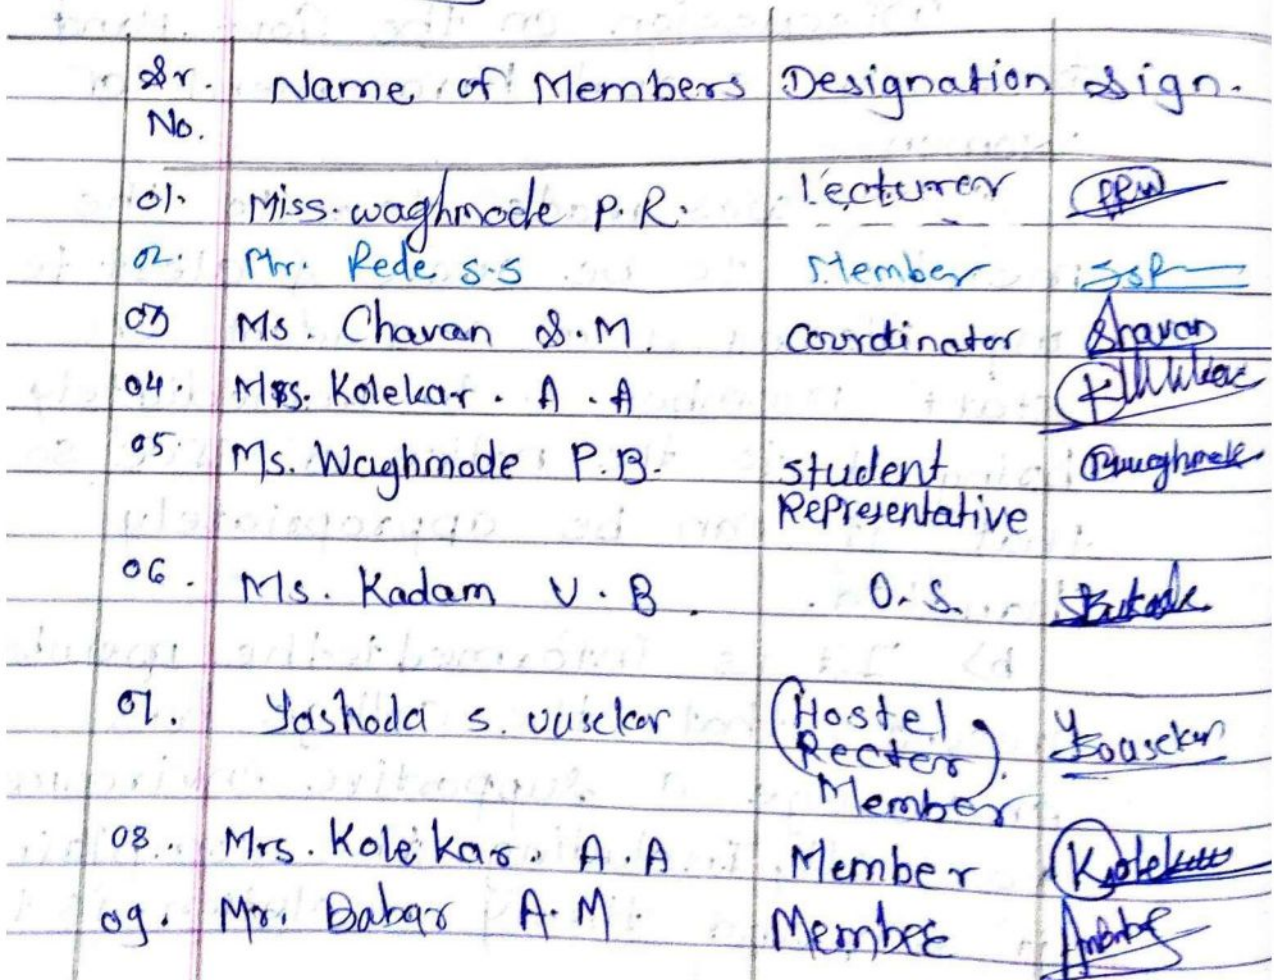 Sr. Name of Members Designation Sign.
No.
01. Miss. Waghmode P.R. Lecturer PRW
02. Mr. Rede S.S Member SSR
03 Ms. Chavan S.M. Coordinator Shavan
04. Mrs. Kolekar. A.A
05. Ms. Waghmode P.B. Student
Representative
06. Ms. Kadam V.B. O.S.
07. Yashoda S. (Hostel
Recter)
Member
08. Mrs. Kolekar. A.A Member Kolekar
09. Mr. Babar A.M. Member